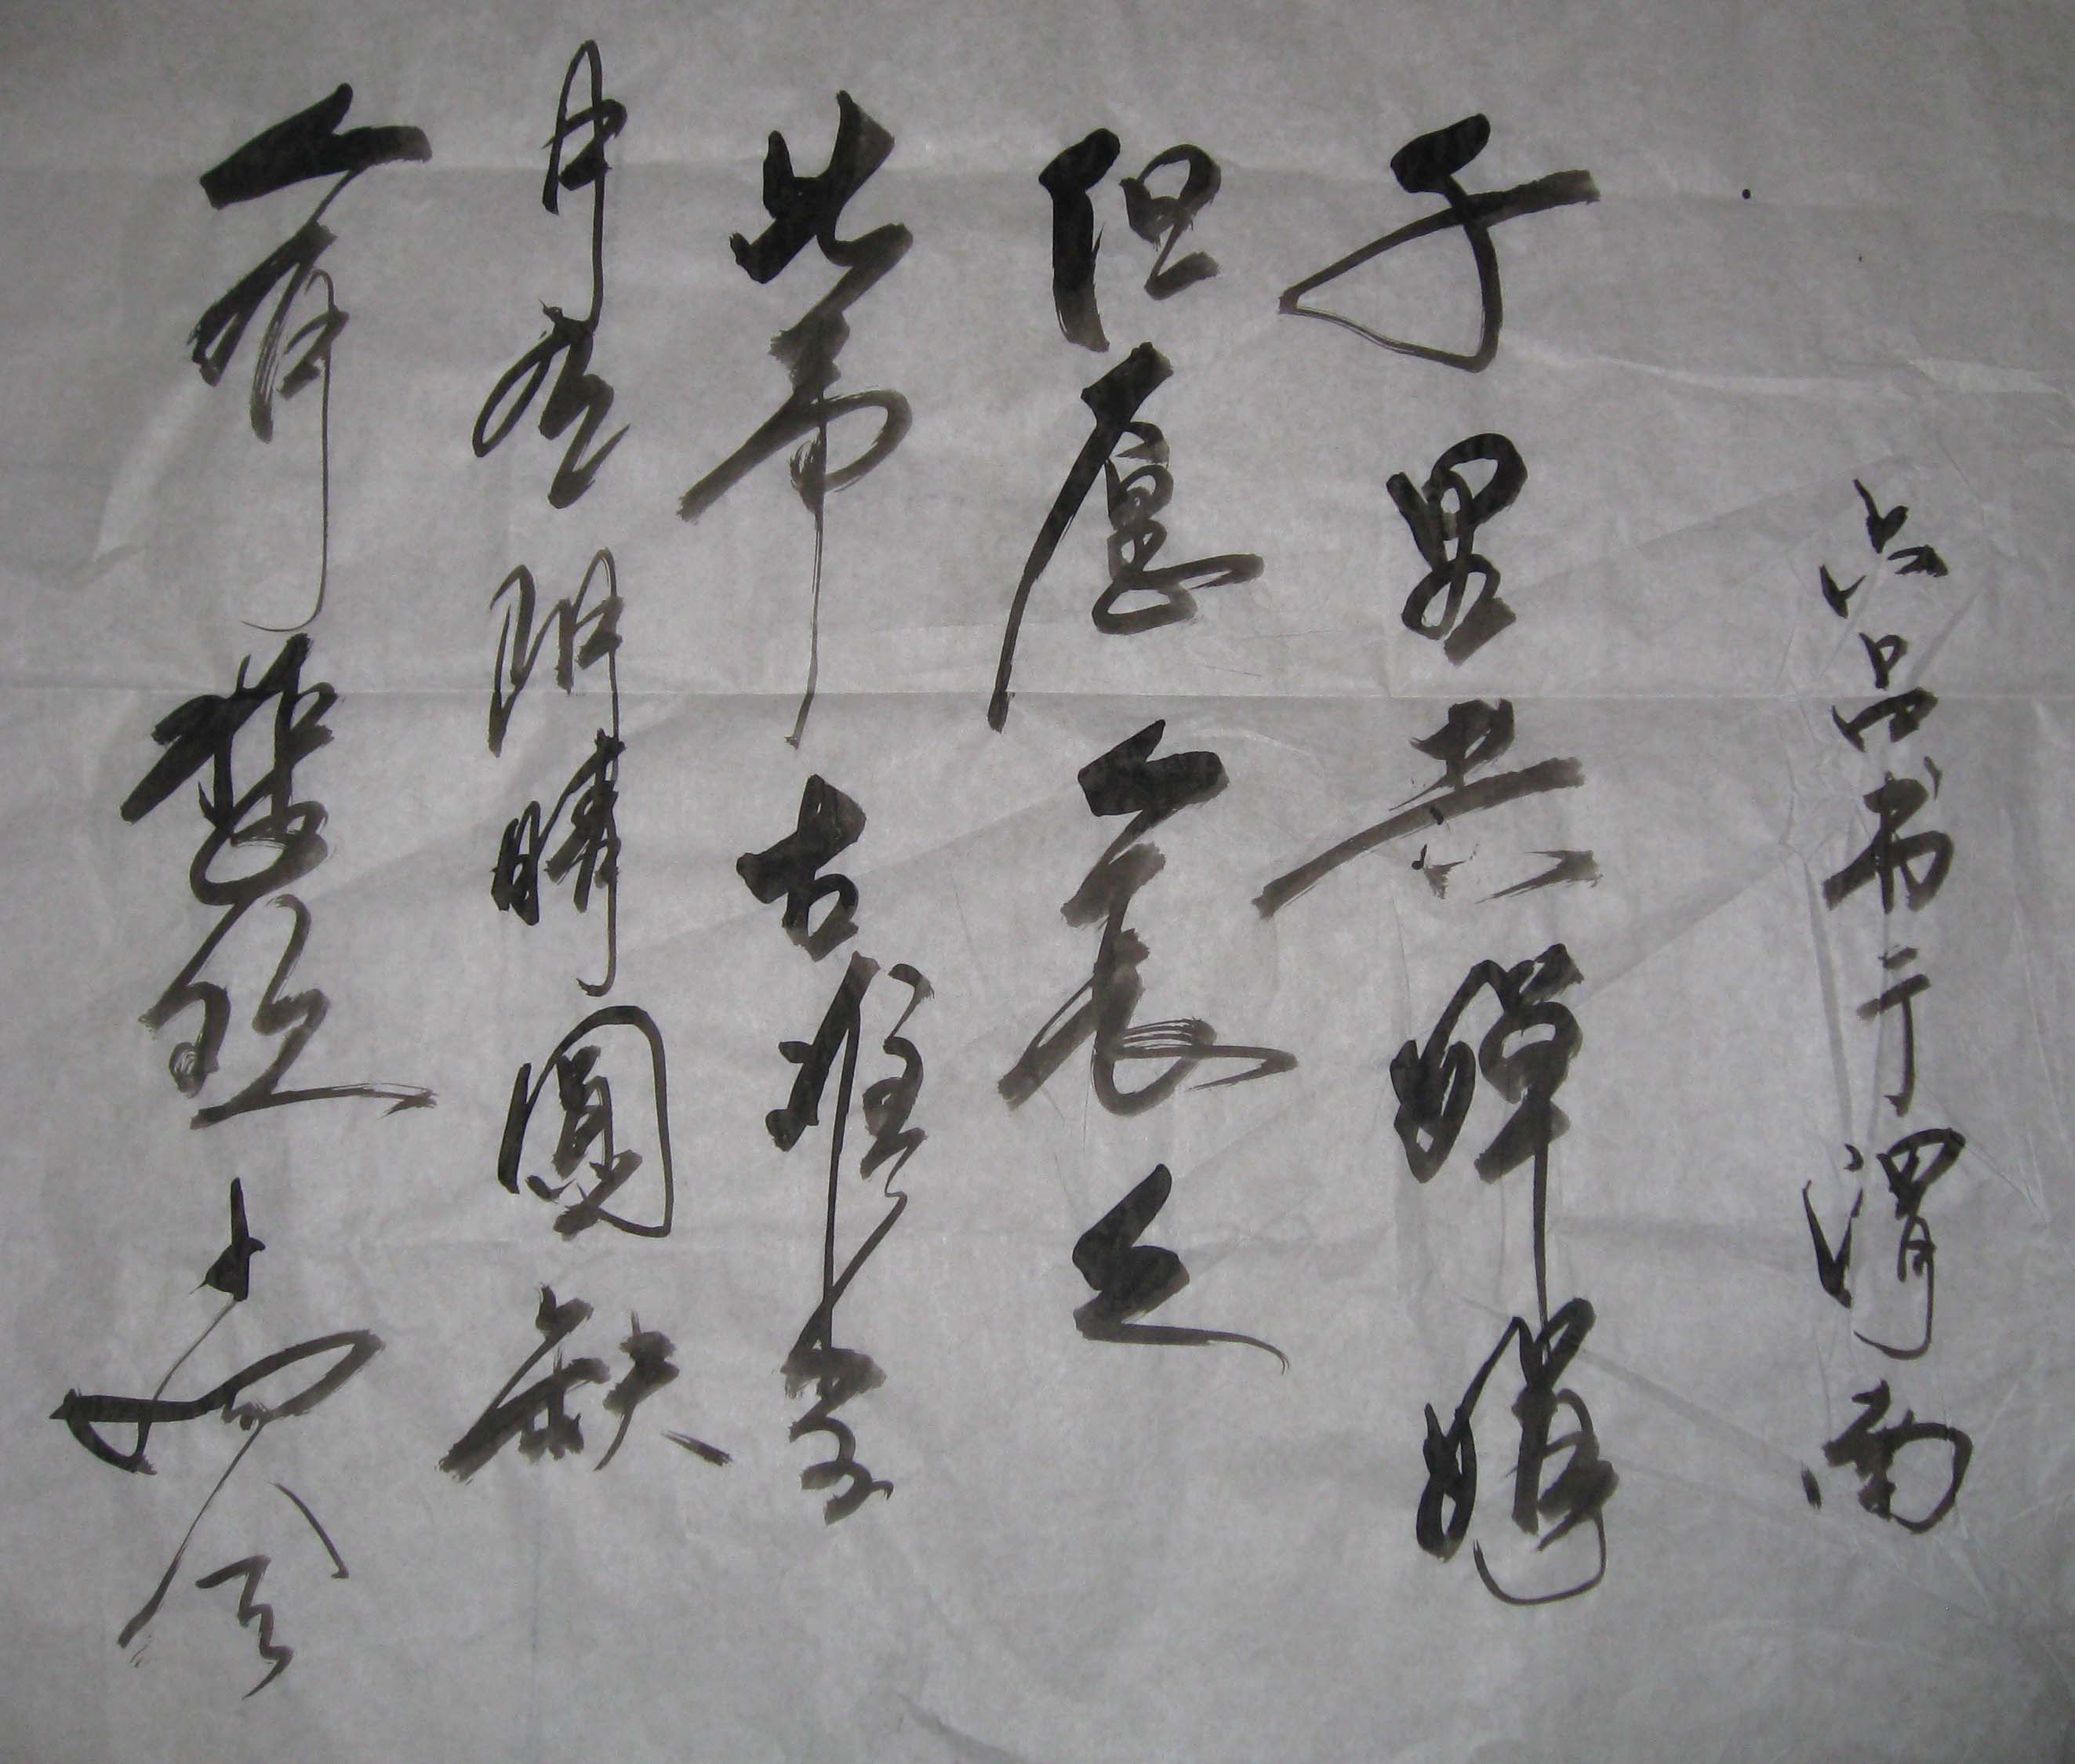 人有悲欢离合
月有阴晴圓缺
此事古难全
但愿人長久
千里共婵娟
六品书于渭南